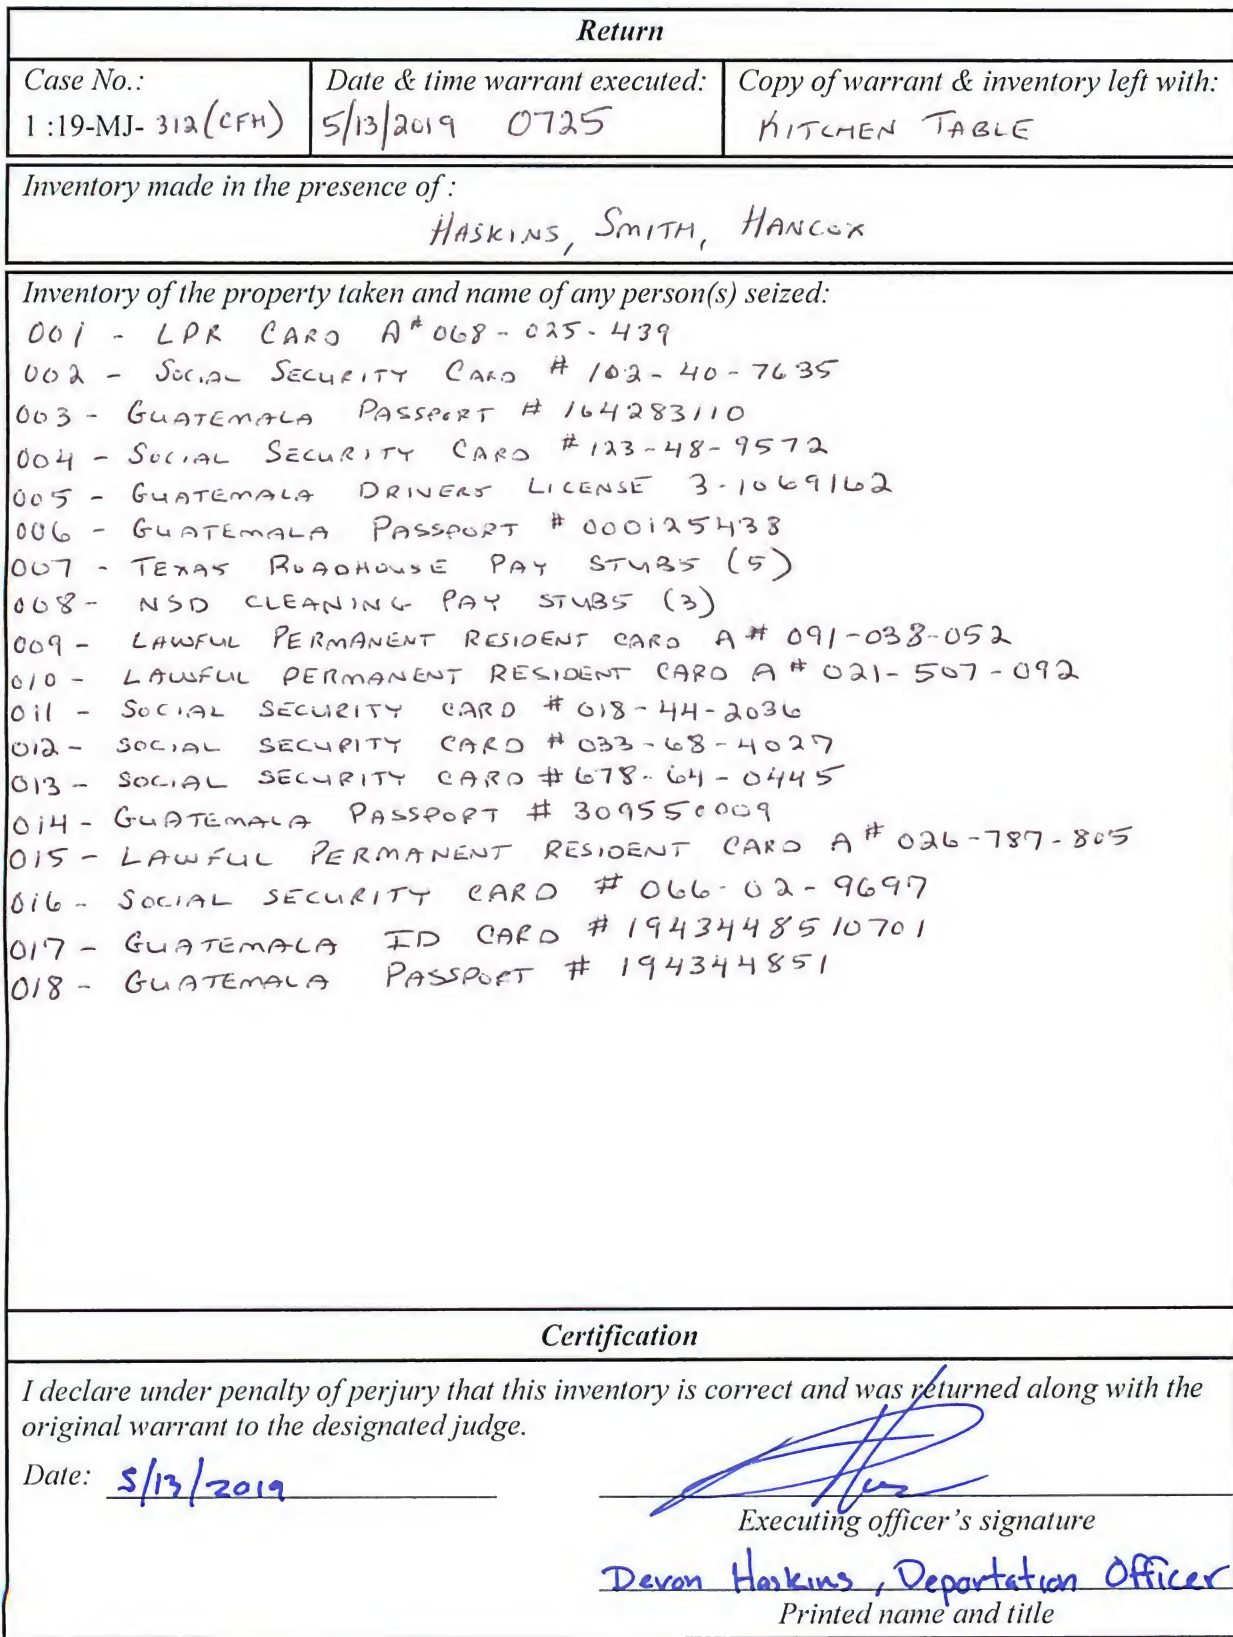 Return
Case No.:
1 :19-MJ- 312(CFH)
Date & time warrant executed:
5/13/2019 0725
Copy of warrant & inventory left with:
KITCHEN TABLE
Inventory made in the presence of :
HASKINS, SMITH, HANCOX
Inventory of the property taken and name of any person(s) seized:
001 - LPR CARD A# 068-025-439
002 - SOCIAL SECURITY CARD # 102-40-7635
003 - GUATEMALA PASSPORT # 164283110
004 - SOCIAL SECURITY CARD #123-48-9572
005 - GUATEMALA DRIVERS LICENSE 3-1069162
006 - GUATEMALA PASSPORT # 000125438
007 - TEXAS ROADHOUSE PAY STUBS (5)
008 - NSD CLEANING PAY STUBS (3)
009 - LAWFUL PERMANENT RESIDENT CARD A# 091-038-052
010 - LAWFUL PERMANENT RESIDENT CARD A# 021-507-092
011 - SOCIAL SECURITY CARD # 018-44-2036
012 - SOCIAL SECURITY CARD # 033-68-4027
013 - SOCIAL SECURITY CARD # 678-64-0445
014 - GUATEMALA PASSPORT # 309550009
015 - LAWFUL PERMANENT RESIDENT CARD A# 026-787-805
016 - SOCIAL SECURITY CARD # 066-02-9697
017 - GUATEMALA ID CARD # 1943448510701
018 - GUATEMALA PASSPORT # 194344851
Certification
I declare under penalty of perjury that this inventory is correct and was returned along with the
original warrant to the designated judge.
Date: 5/13/2019
Executing officer's signature
Devon Haskins, Deportation Officer
Printed name and title